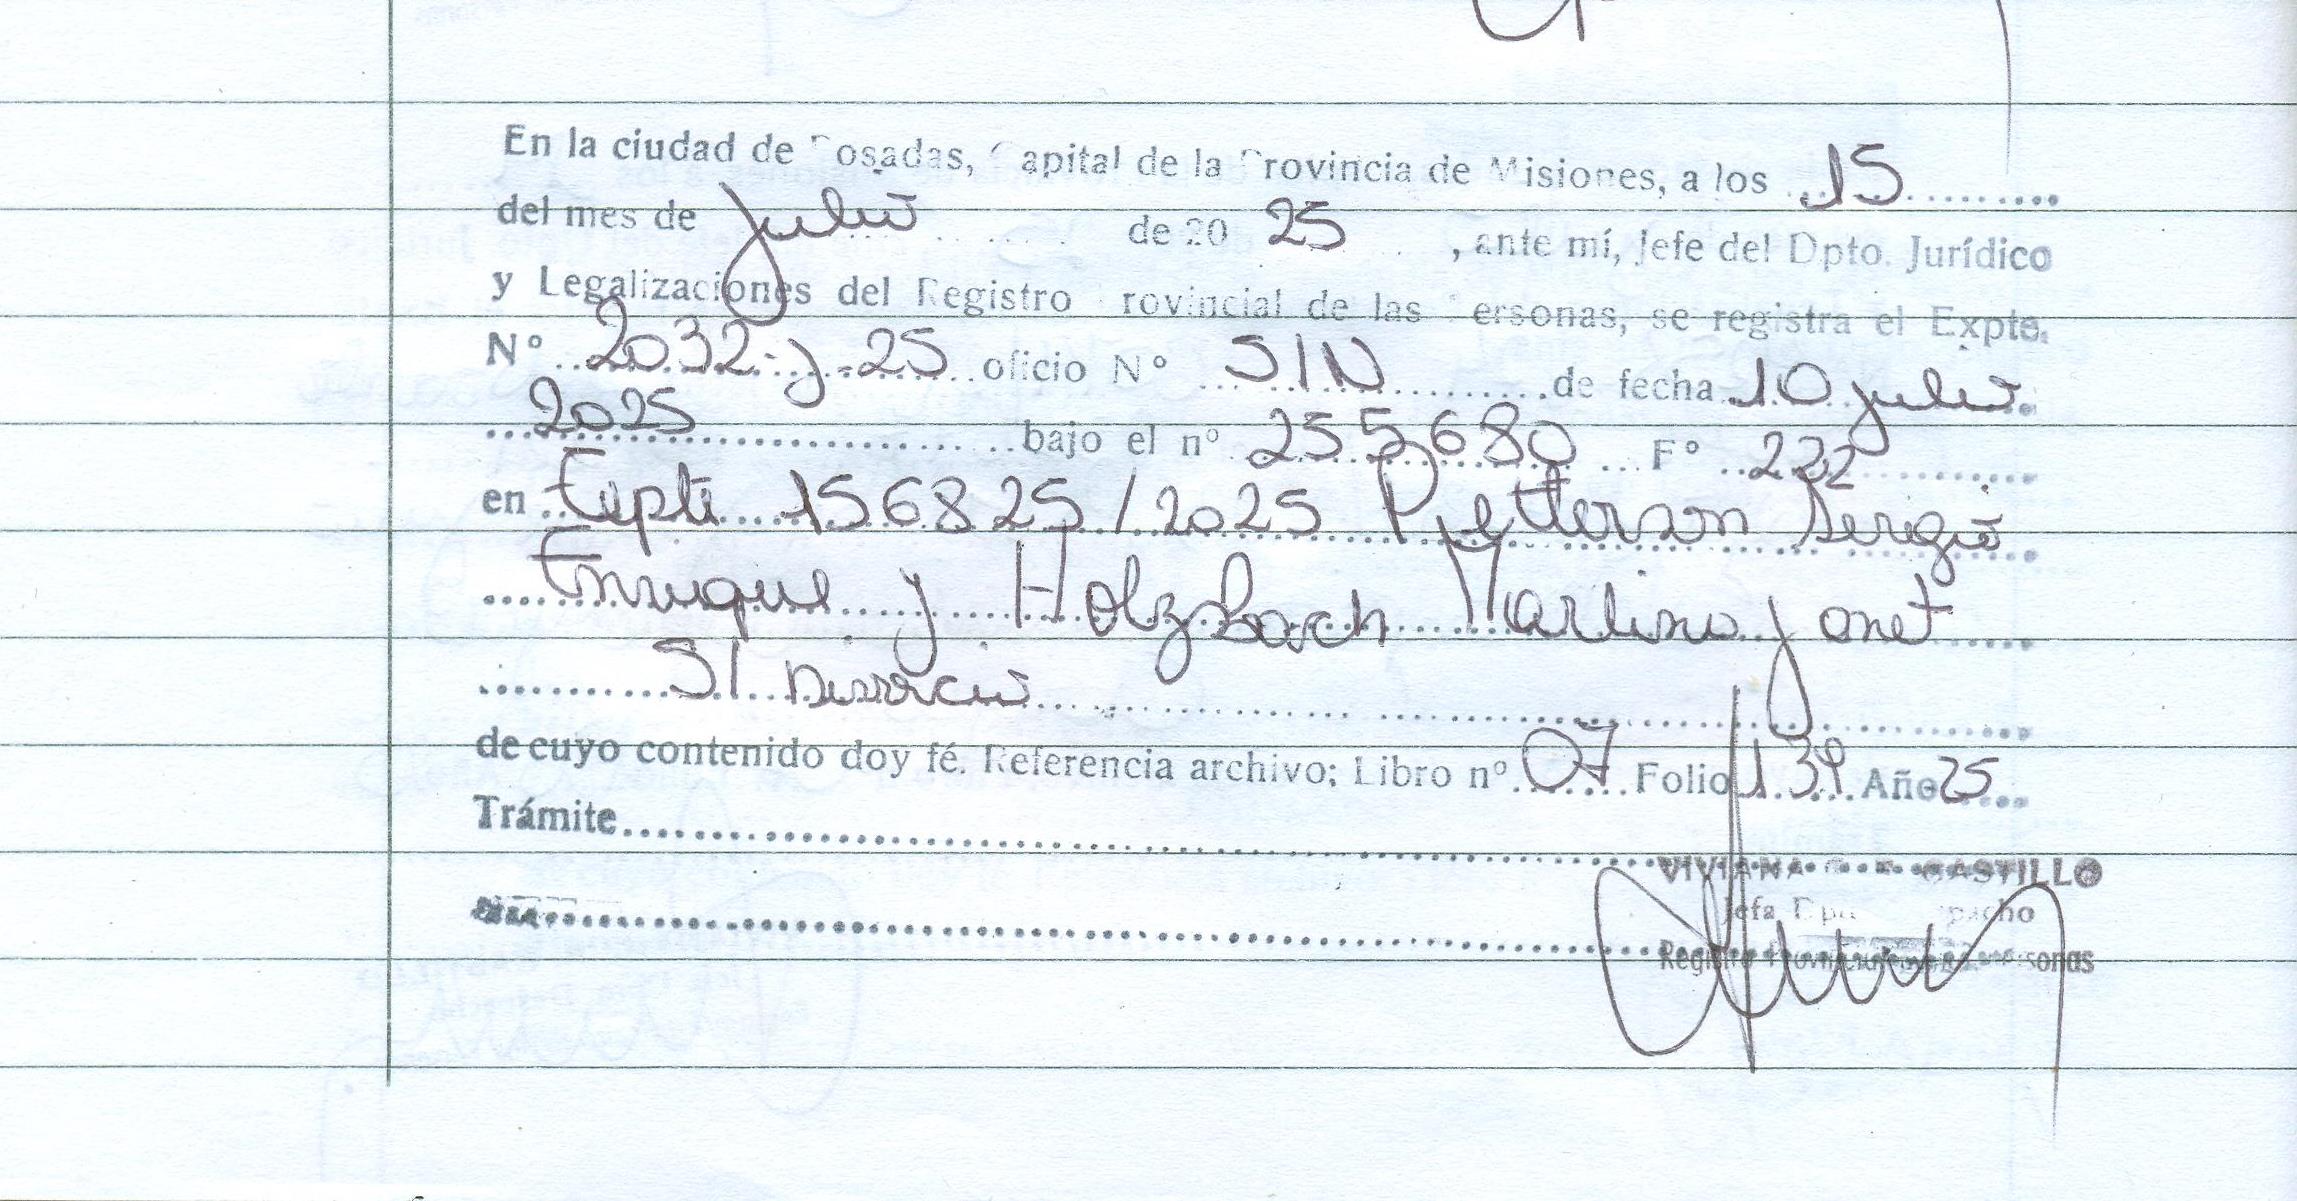 En la ciudad de Posadas, Capital de la Provincia de Misiones, a los 15
del mes de julio de 20 25, ante mí, Jefe del Dpto. Jurídico
y Legalizaciones del Registro Provincial de las Personas, se registra el Expte.
Nº 2032-J-25 oficio Nº S/N de fecha 10 julio
2025 bajo el nº 255680 Fº 232
en Expte 156825/2025 Petterson Sergio
Enrique y Holzbach Marlene Janet
S/ Divorcio
de cuyo contenido doy fé. Referencia archivo; Libro nº 07 Folio 139 Año 25
Trámite
VIVIANA CASTILLO
Jefa Dpto. Despacho
Registro Provincial Personas